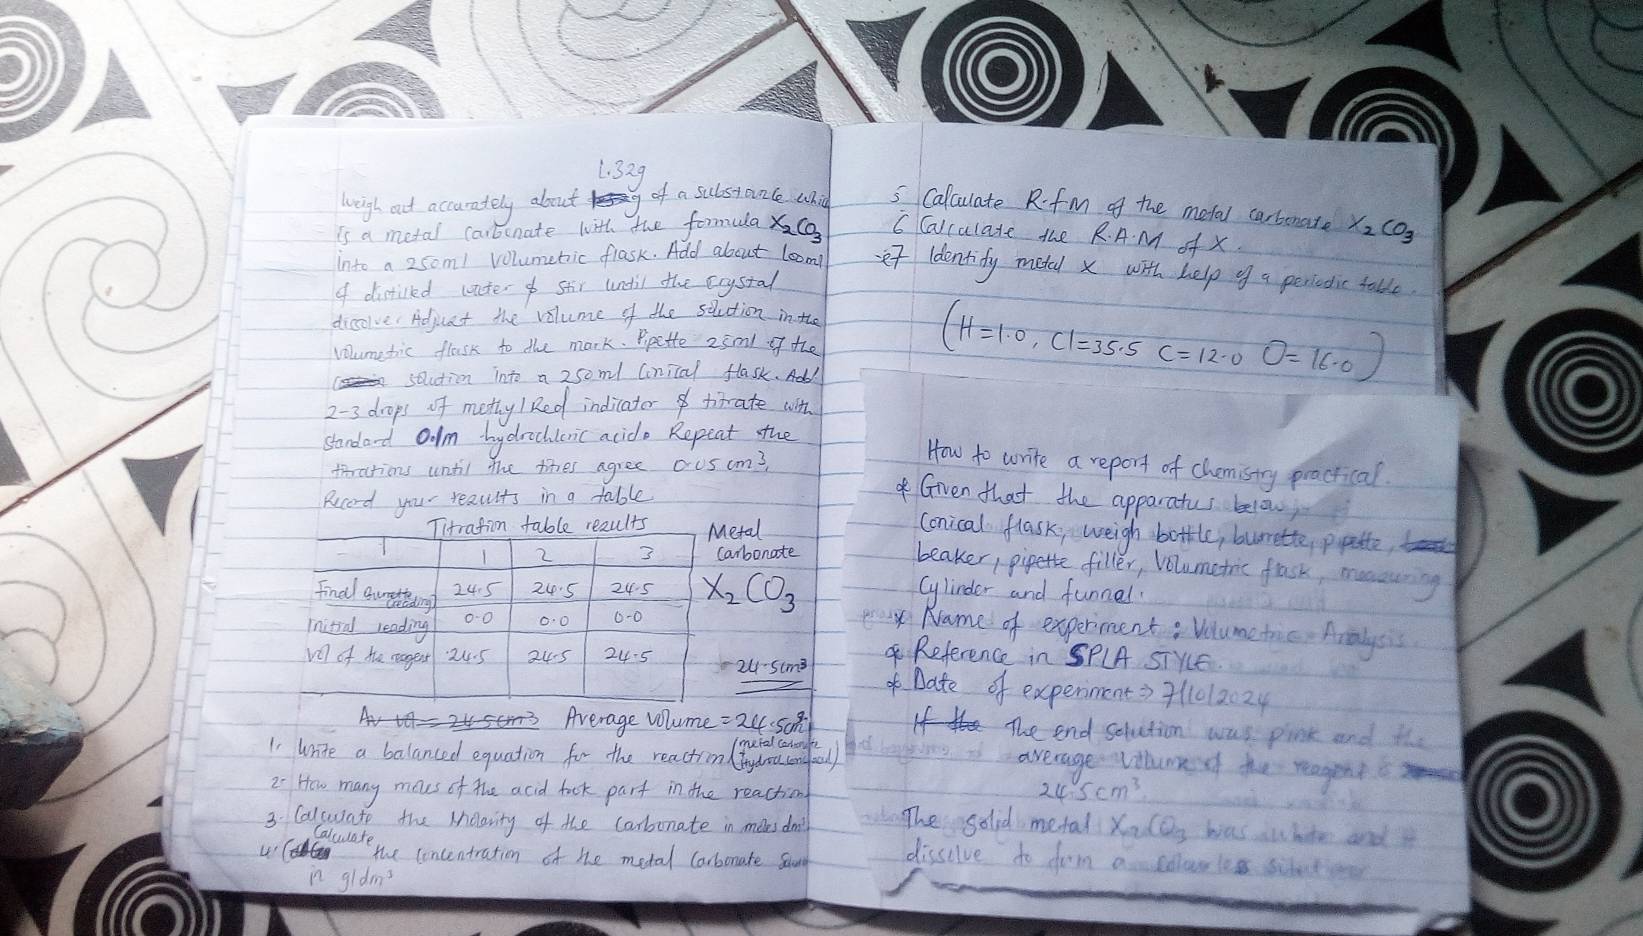 1.32g
Weigh out accurately about g of a substance whi
is a metal carbonate with the formula X₂CO₃
into a 250ml volumetric flask. Add about 100ml
of distilled water & stir until the crystal
dissolve. Adjust the volume of the solution in the
volumetric flask to the mark. Pipette 25ml of the
solution into a 250ml Conical flask. Add
2-3 drops of methyl Red indicator & titrate with
standard 0.1m hydrochloric acid. Repeat the
titrations until the titres agree 0.05 cm³.
Record your results in a table
Titration table results
1 2 3
Final Burrette reading 24.5 24.5 24.5
Initial reading 0.0 0.0 0.0
Vol of the reagent 24.5 24.5 24.5
Metal
Carbonate
X₂CO₃
24.5cm³
Av vol = 24.5cm³ Average volume = 24.5cm³
1. Write a balanced equation for the reaction (metal carbonate
Hydrochloric acid)
2. How many moles of the acid took part in the reaction
3. Calculate the Molarity of the carbonate in moles dm³
4. Calculate the concentration of the metal carbonate
in g/dm³
5 Calculate R.f.M of the metal carbonate X₂CO₃
6 Calculate the R.A.M of X.
7 Identify metal X with help of a periodic table.
(H=1.0, Cl=35.5 C=12.0 O=16.0)
How to write a report of chemistry practical.
* Given that the apparatus below;
Conical flask, weigh bottle, burrette, pipette,
beaker, pipette filler, Volumetric flask, measuring
Cylinder and funnel.
* Name of experiment: Volumetric Analysis
* Reference in SPLA STYLE.
* Date of experiment ⇒ 7/10/2024
If the The end solution was pink and the
average volume of the reagent is
24.5cm³.
The solid metal X₂CO₃ was white and it
dissolve to form a colourless